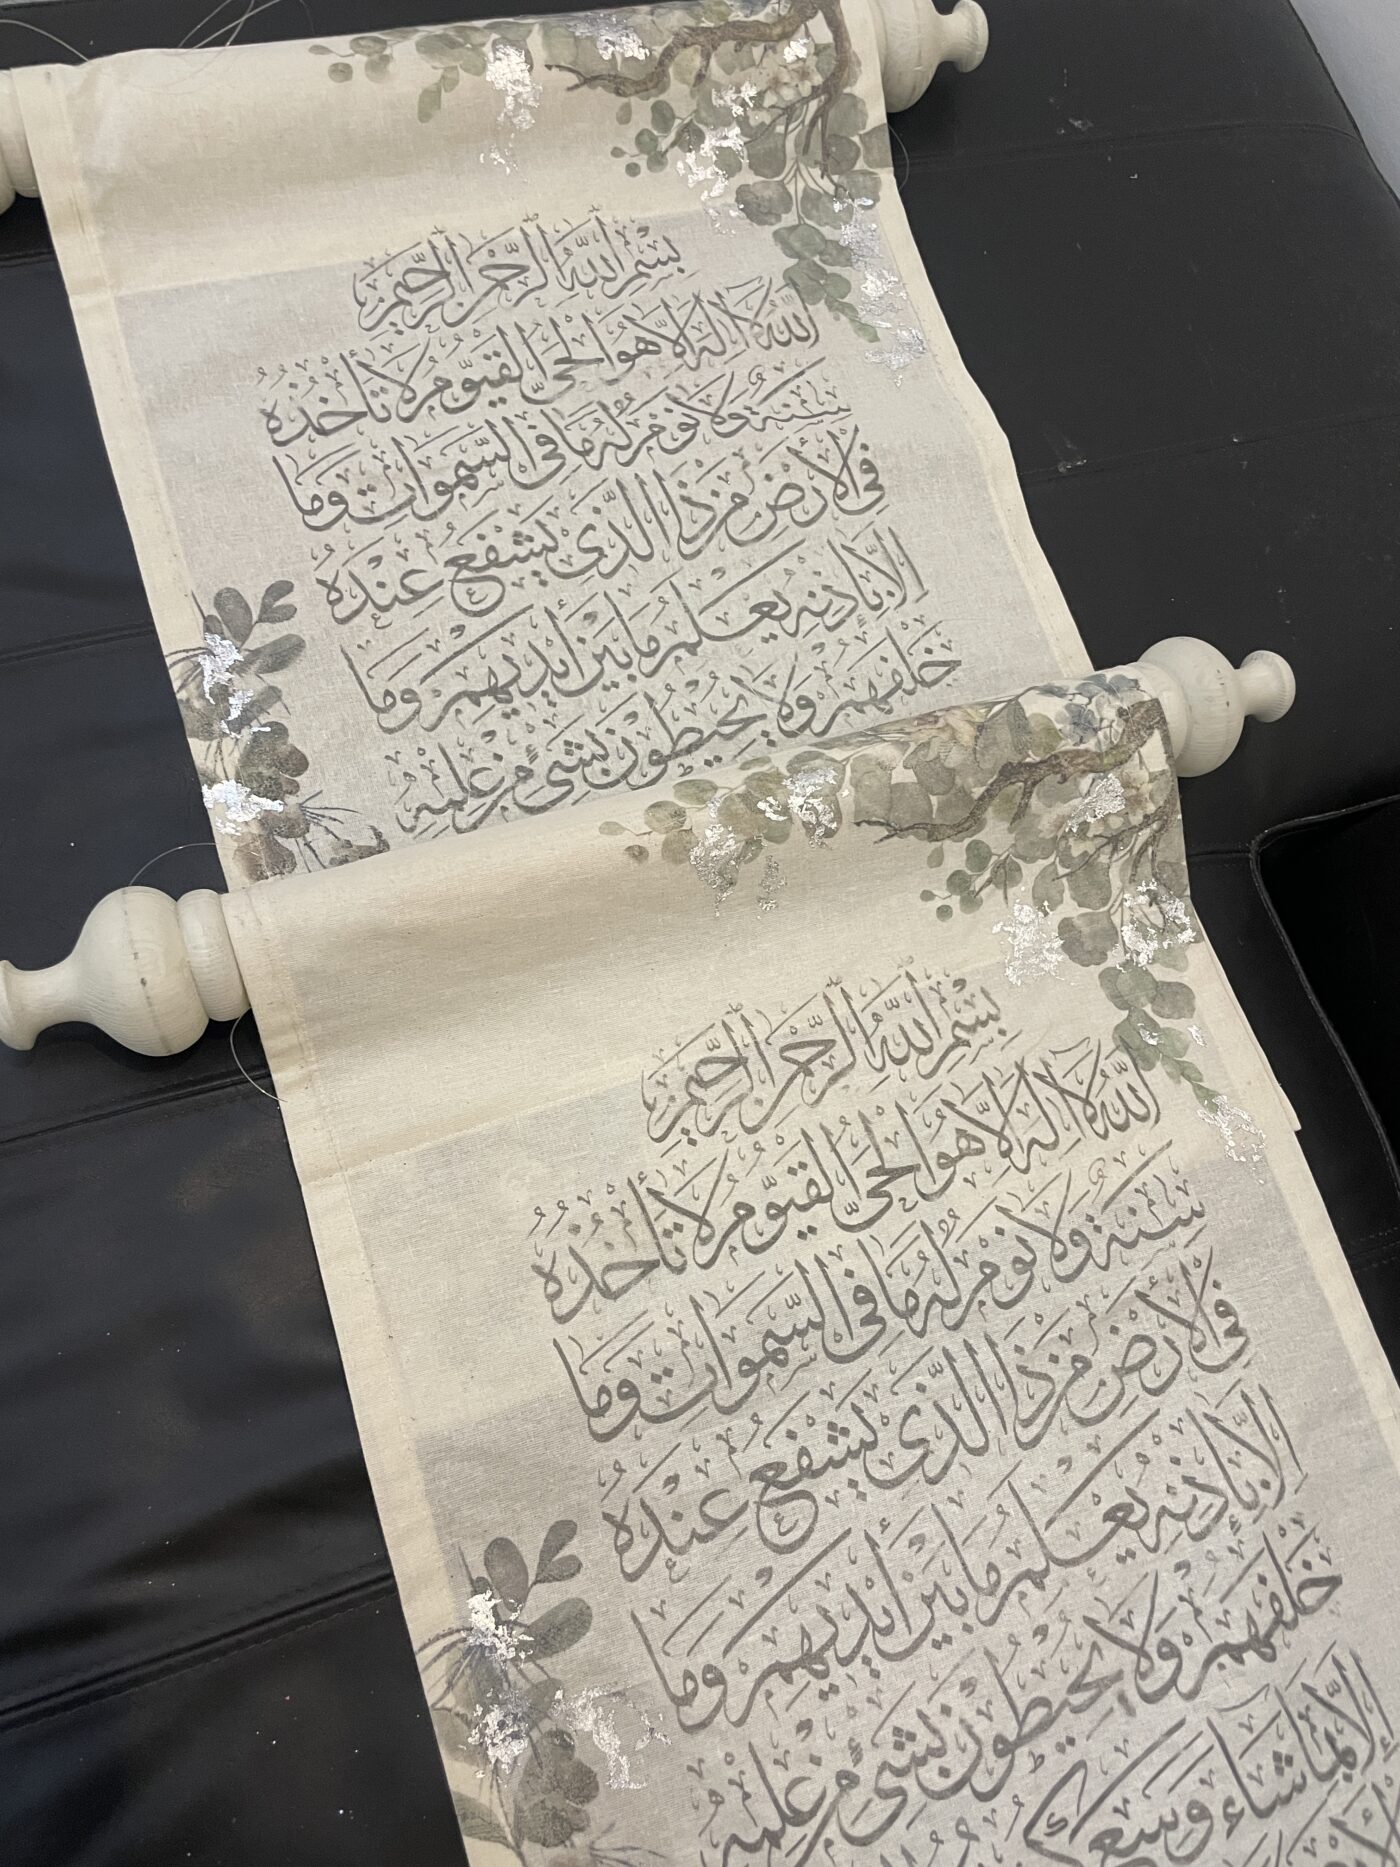 بِسْمِ ٱللَّهِ ٱلرَّحْمَٰنِ ٱلرَّحِيمِ
اللَّهُ لَا إِلَهَ إِلَّا هُوَ الْحَيُّ الْقَيُّومُ لَا تَأْخُذُهُ
سِنَةٌ وَلَا نَوْمٌ لَهُ مَا فِي السَّمَوَاتِ وَمَا
فِي الْأَرْضِ مَنْ ذَا الَّذِي يَشْفَعُ عِنْدَهُ
إِلَّا بِإِذْنِهِ يَعْلَمُ مَا بَيْنَ أَيْدِيهِمْ وَمَا
خَلْفَهُمْ وَلَا يُحِيطُونَ بِشَيْءٍ مِنْ عِلْمِهِ
بِسْمِ ٱللَّهِ ٱلرَّحْمَٰنِ ٱلرَّحِيمِ
اللَّهُ لَا إِلَهَ إِلَّا هُوَ الْحَيُّ الْقَيُّومُ لَا تَأْخُذُهُ
سِنَةٌ وَلَا نَوْمٌ لَهُ مَا فِي السَّمَوَاتِ وَمَا
فِي الْأَرْضِ مَنْ ذَا الَّذِي يَشْفَعُ عِنْدَهُ
إِلَّا بِإِذْنِهِ يَعْلَمُ مَا بَيْنَ أَيْدِيهِمْ وَمَا
خَلْفَهُمْ وَلَا يُحِيطُونَ بِشَيْءٍ مِنْ عِلْمِهِ
إِلَّا بِمَا شَاءَ وَسِعَ